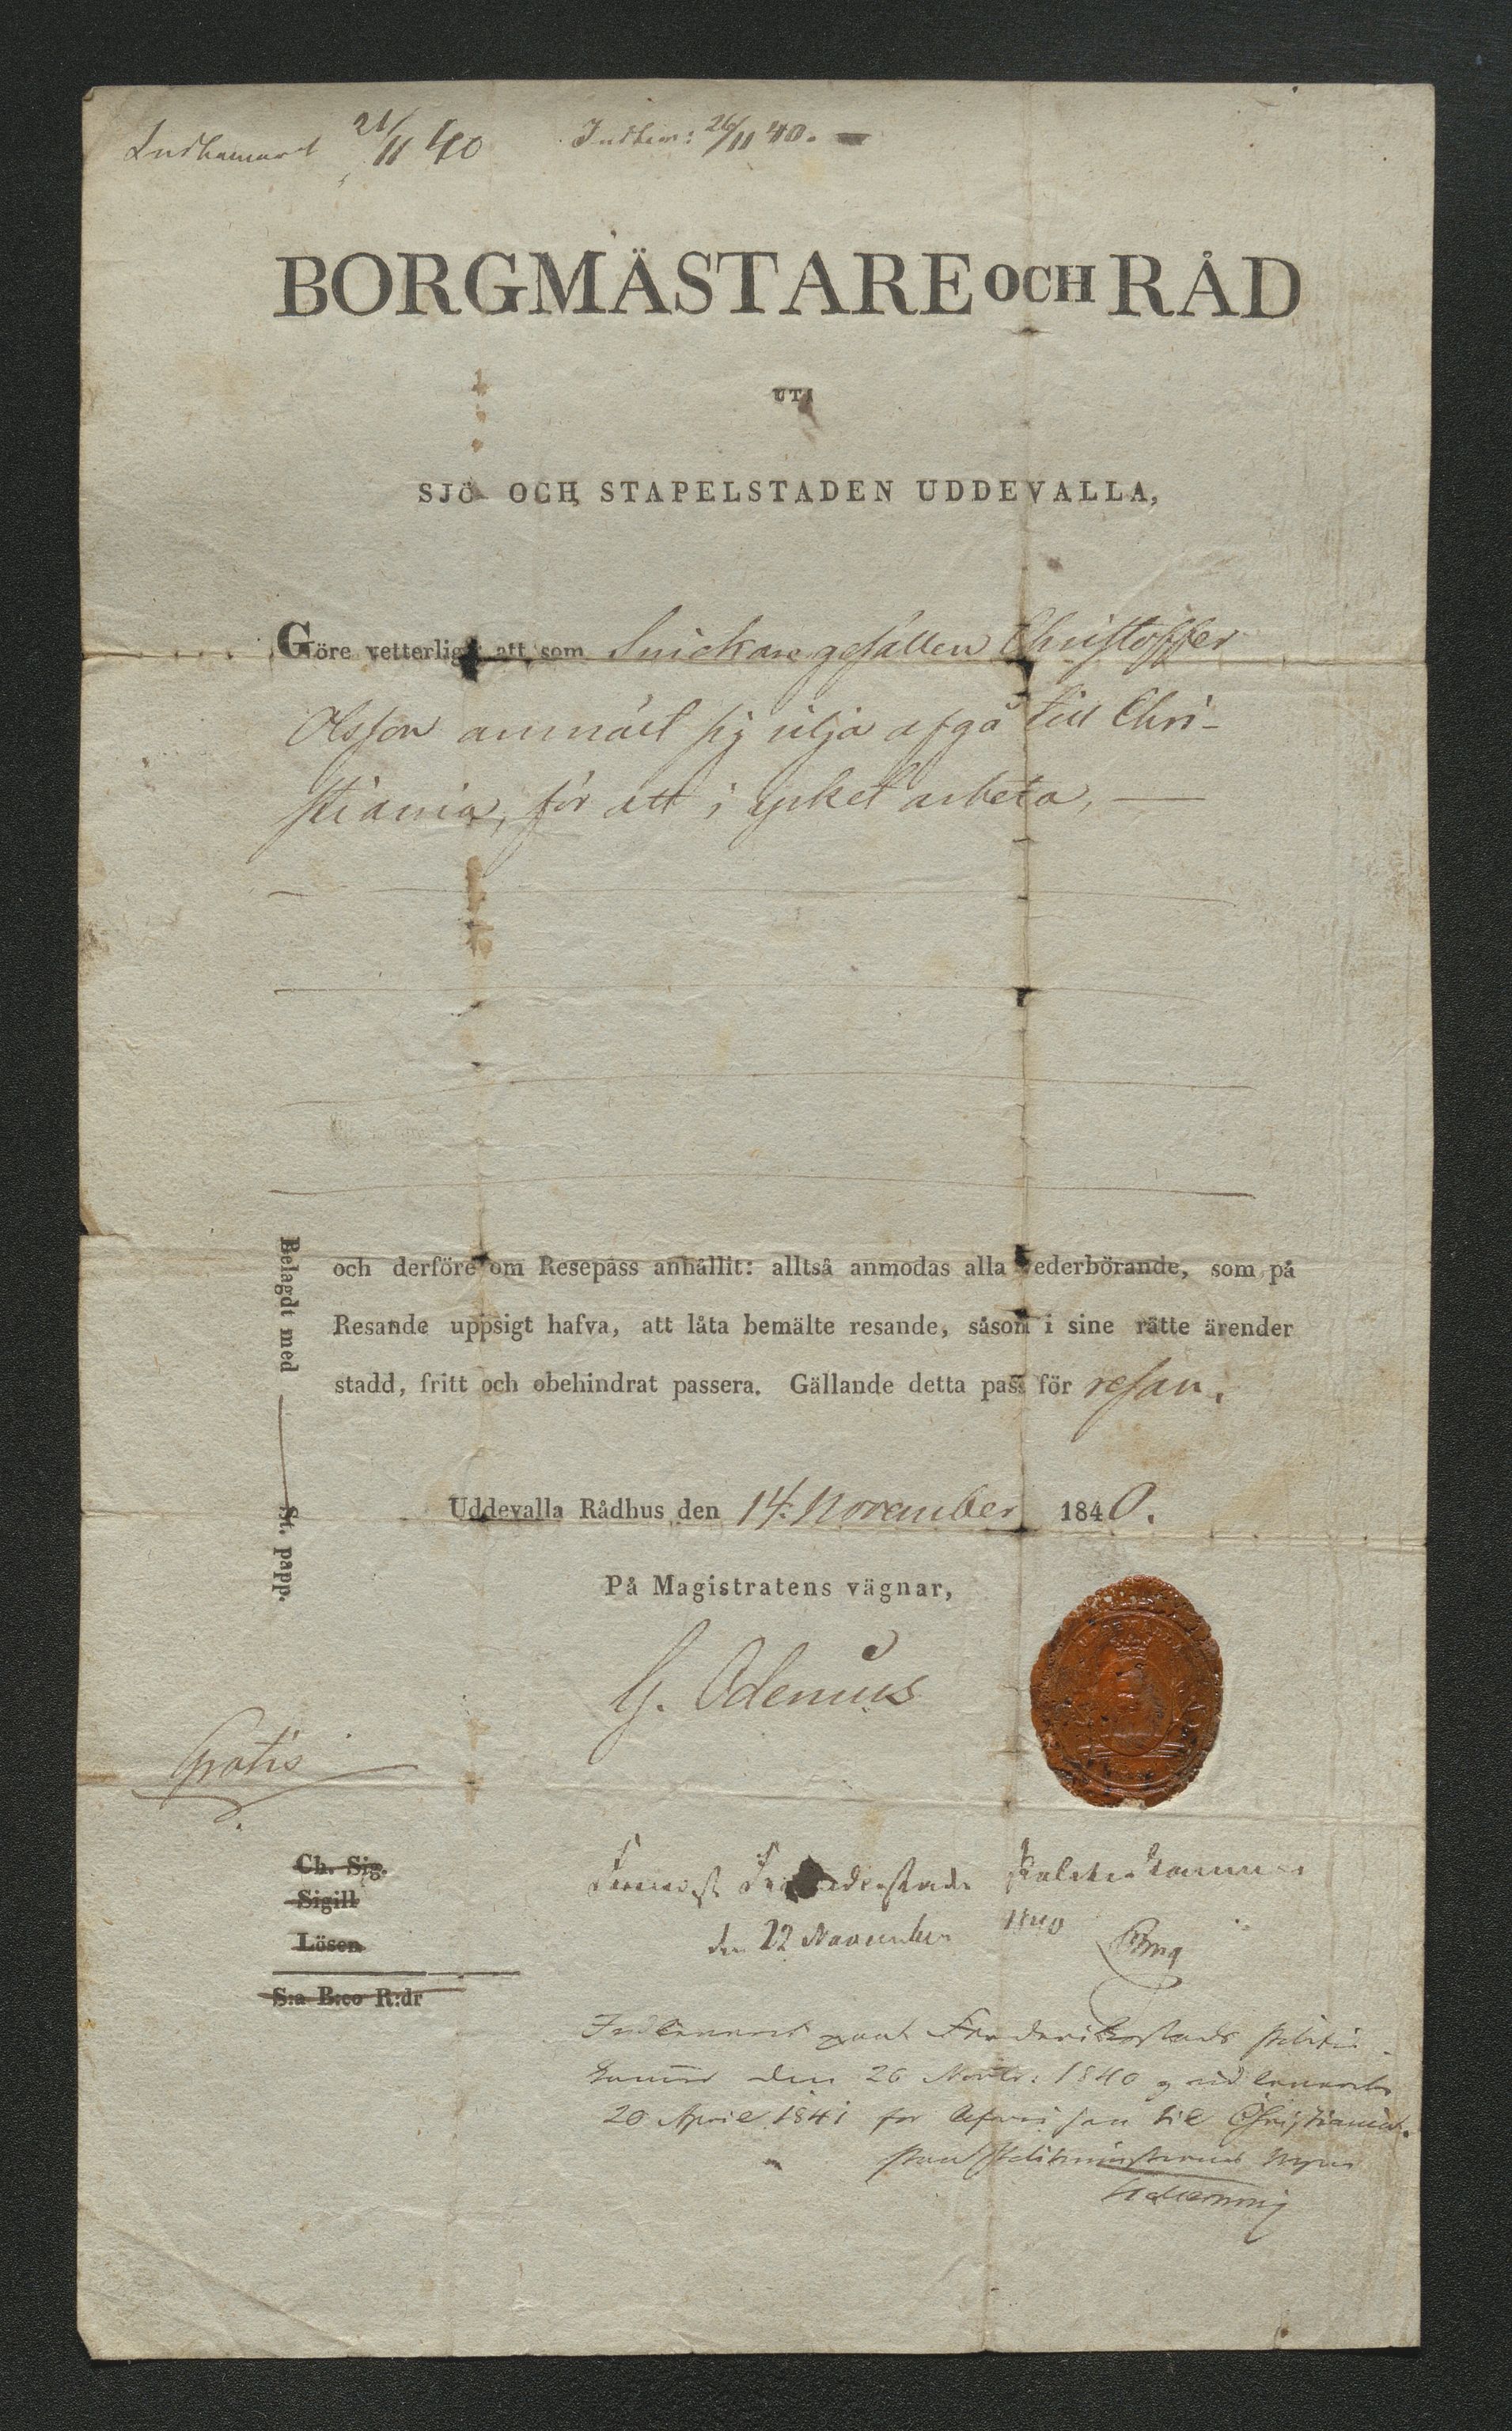 21/11 40 Indlev: 26/11 40.
BORGMÄSTARE OCH RÅD
UTI
SJÖ- OCH STAPELSTADEN UDDEVALLA,
Göre vetterligt att som Snickaregesällen Christoffer
Olsson anmält sig vilja afgå till Chri-
stiania, för att i yrket arbeta,
och derföre om Resepass anhållit: alltså anmodas alla vederbörande, som på
Resande uppsigt hafva, att låta bemälte resande, såsom i sine rätte ärender
stadd, fritt och obehindrat passera. Gällande detta pass för resan.
Belagdt med St. papp.
Uddevalla Rådhus den 14. November 1840.
På Magistratens vägnar,
G. Odenius
UDDEWALLA
Gratis
Ch. Sig.
Sigill
Lösen
S:a B:co R:dr
Politiekammer
den 22 November 1840
Indleveret paa Frederikstads Politie-
kammer den 26 Novbr: 1840 og udleveret
20 April 1841 for Afreisen til Christiania.